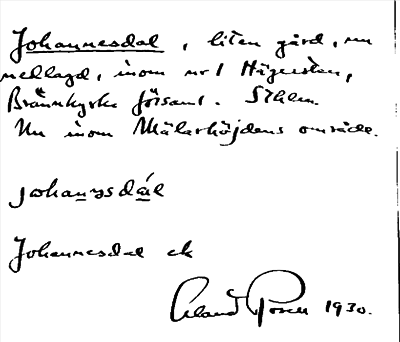 Johannesdal, liten gård, nu
nedlagd, inom nr 1 Hägersten,
Brännkyrka förs:aml. Sthlm.
Nu inom Mälarhöjdens område.
johan:sdál
Johannesdal ek
Erland Rosell 1930.